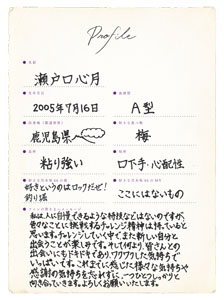 Profile
瀬戸口心月
2005年7月16日
A型
鹿児島県
梅
粘り強い
口下手・心配性
好きというのはロックだぜ!
釣り堀
ここにはないもの
私は人に自慢できるような特技などはないのですが、
色々なことに挑戦するチャレンジ精神は持っていると
思います。チャレンジしていく中でまた新しい自分と
出会うことが楽しみです。そして何より、皆さんとの
出会いにもドキドキであり、ワクワクした気持ちで
いっぱいです。これまでに感じた様々な気持ちや
感謝の気持ちを忘れずに、一つひとつしっかりと
向き合っていきます。よろしくお願いいたします。